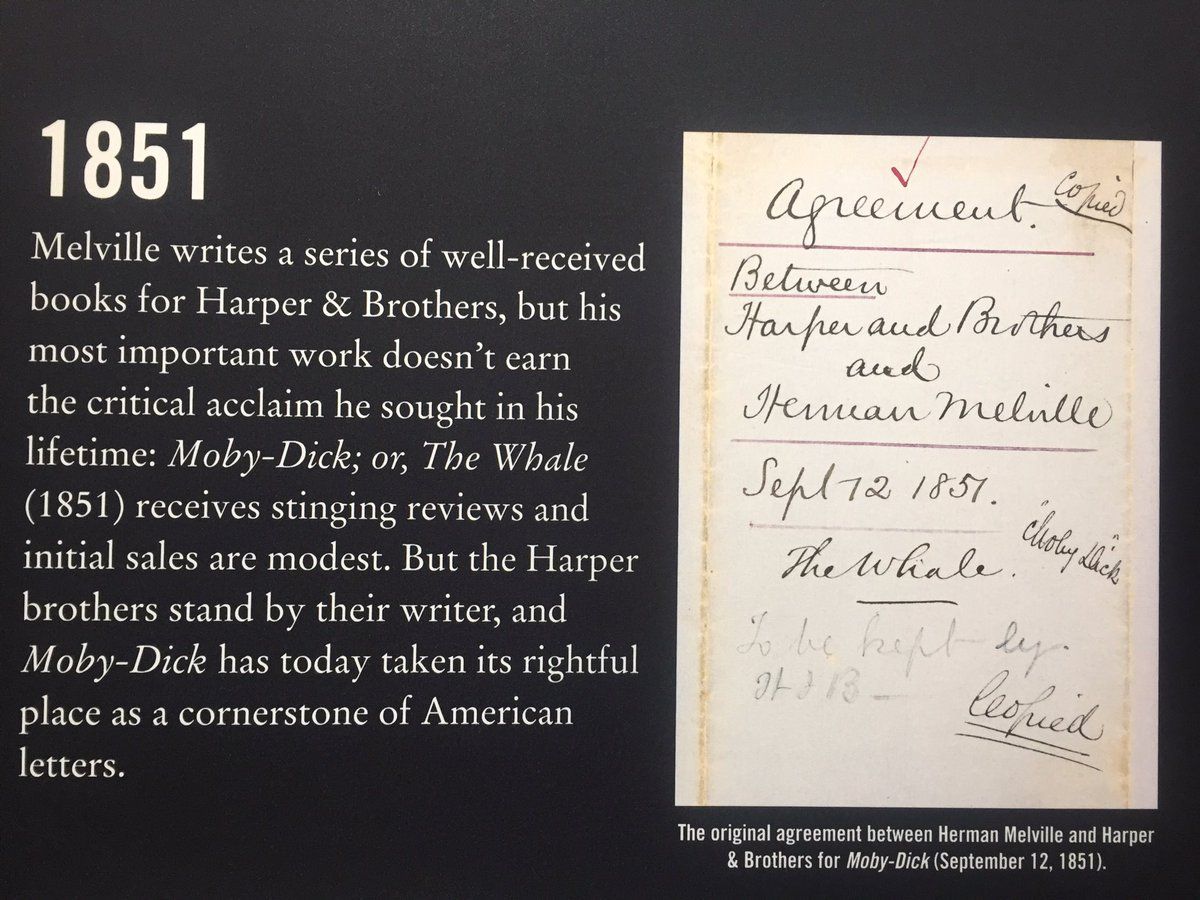 1851
Melville writes a series of well-received
books for Harper & Brothers, but his
most important work doesn't earn
the critical acclaim he sought in his
lifetime: Moby-Dick; or, The Whale
(1851) receives stinging reviews and
initial sales are modest. But the Harper
brothers stand by their writer, and
Moby-Dick has today taken its rightful
place as a cornerstone of American
letters.
Agreement.
Copied
Between
Harper and Brothers
and
Herman Melville
Sept 12 1851.
The Whale.
"Moby Dick"
To be kept by.
H & B –
Copied
The original agreement between Herman Melville and Harper
& Brothers for Moby-Dick (September 12, 1851).